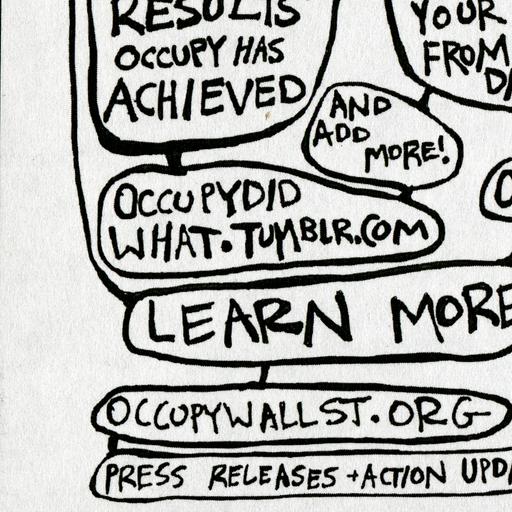 RESULTS
OCCUPY HAS
ACHIEVED
YOUR
FROM
AND
ADD
MORE!
OCCUPYDID
WHAT.TUMBLR.COM
LEARN MORE
OCCUPYWALLST.ORG
PRESS RELEASES +ACTION